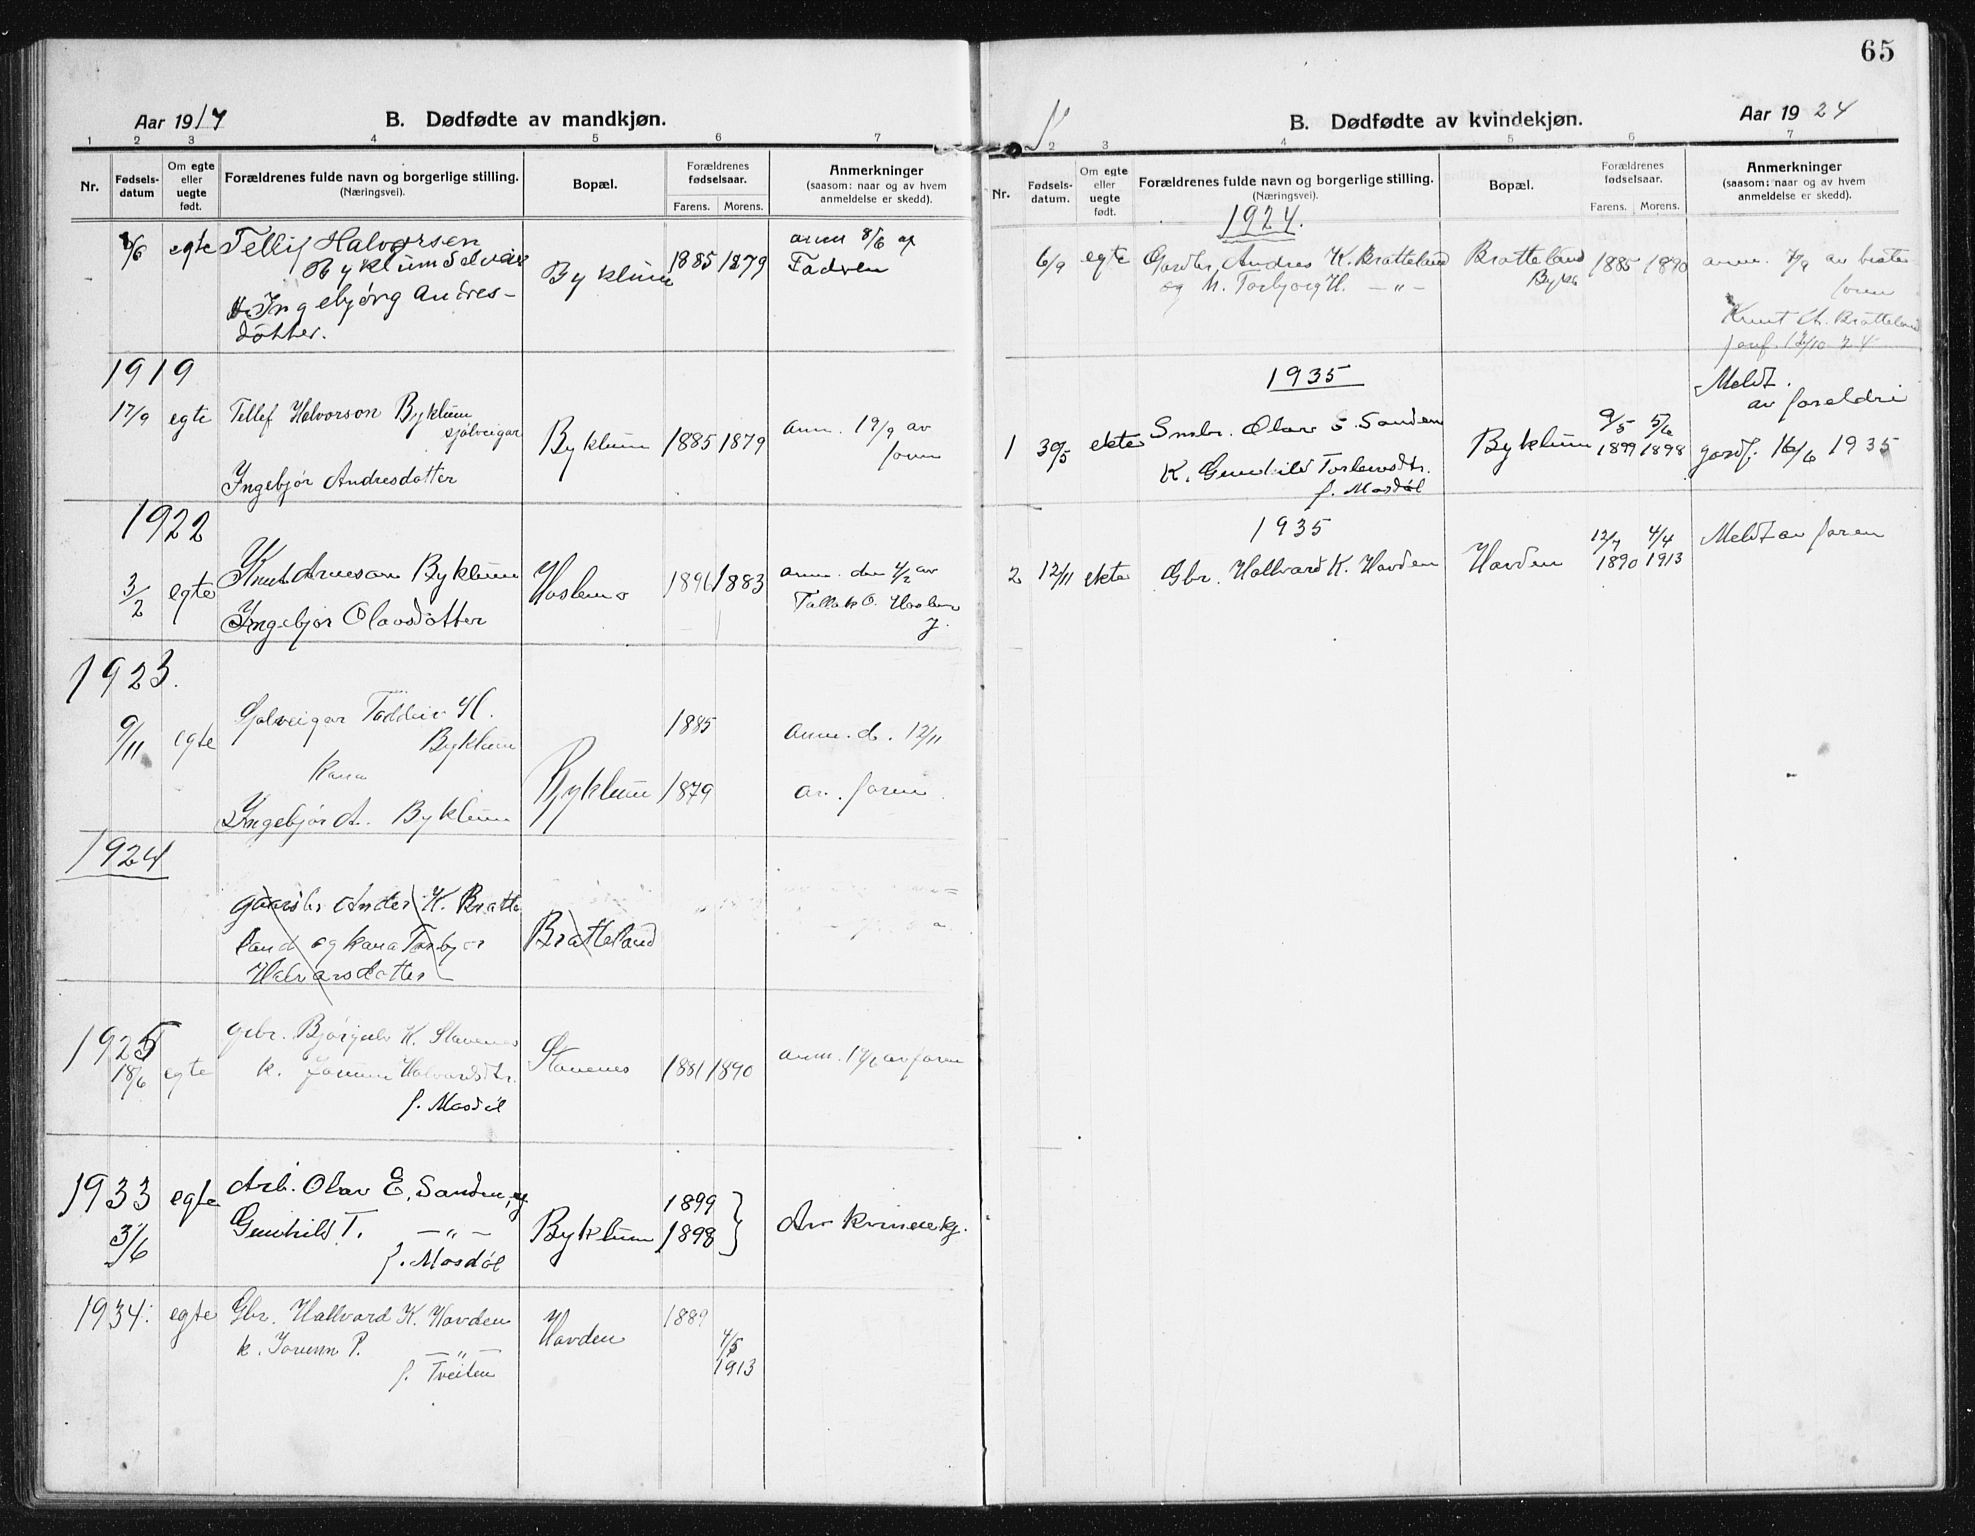 65
Aar 1917 B. Dødfødte av mandkjøn.
1 2 3 4 5 6 7
Nr. Fødsels-datum Om egte eller uegte født. Forældrenes fulde navn og borgerlige stilling. (Næringsvei). Bopæl. Forældrenes fødselsaar. Farens. Morens. Anmerkninger (saasom: naar og av hvem anmeldelse er skedd).
egte Tellef Halvorsen 1885 1879 anm 8/6 af
Byklum
Byklum Fadren
Ingebjørg Andres-
dotter.
1919
17/9 egte Tellef Halvorson Byklum
sjølveigar
Byklum 1885 1879 anm. 19/9 av
faren
Ingebjør Andresdotter
1922
3/2 egte Knut Arneson Byklum
Hoslemo 1896 1883 anm. den 4/2 av
Ingebjør Olavsdotter
Tallak O. Hoslemo
1923.
9/11 egte Sjølveigar H.
Byklum
1885 anm. d. 12/11
kona
Byklum 1879 av faren.
Ingebjør A. Byklum
1924
gaardbr Andres K. Bratte
land og kona Torbjør
Halvorsdotter
Bratteland
1925
18/6 egte gbr. Bjørgulv K. Stavenes
k. Jorunn Halvardsdtr.
f. Mosdøl
Stavenes 1881 1890 anm. av faren
1933 egte Arb. Olav E. Sanden, og
3/6 Gunhild T. —"—
f. Mosdøl
Byklum 1899
1898 } Av kvinnekj.
1934. egte Gbr. Hallvard K. Hovden
k. Jorunn P. —"—
f. Tveiten
Hovden 1889
4/5
1913
B. Dødfødte av kvindekjøn. Aar 1924
2 3 4 5 6 7
Nr. Fødsels-datum. Om egte eller uegte født. Forældrenes fulde navn og borgerlige stilling. (Næringsvei). Bopæl. Forældrenes fødselsaar. Farens. Morens. Anmerkninger (saasom: naar og av hvem anmeldelse er skedd).
1924.
6/9 egte Gardbr. Andres K. Bratteland
og Torbjørg H. —"—
Bratteland
Bykle
1885 1890 anm. 7/9 av beste
faren
Knut A. Bratteland
jonf. 12/10 24
1935
1 30/5 ekte Smbr. Olav E. Sanden
K. Gunhild Torleivsdtr.
f. Mosdøl
Byklum 9/5 1899 5/6 1898
Meldt
av foreldri
jordf. 16/6 1935
1935
2 12/11 ekte Gbr. Hallvard K. Hovden Hovden 12/7 1890 4/4 1913 Meldt av faren